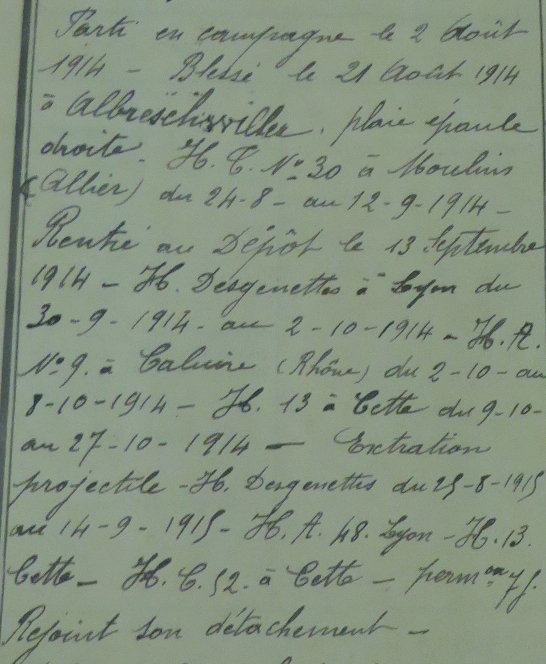 Parti en campagne le 2 Août
1914 - Blessé le 21 Août 1914
à Albreschwiller. plaie épaule
droite. H. C. N° 30 à Moulins
(Allier) du 24-8- au 12-9-1914 -
Rentré au Dépôt le 13 Septembre
1914 - H. Desgenettes à Lyon du
30-9-1914- au 2-10-1914 - H. A.
N° 9. à Caluire (Rhône) du 2-10- au
8-10-1914 - H. 13 à Cette du 9-10-
au 27-10-1914 - Extration
projectile - H. Desgenettes du 25-8-1915
au 14-9-1915 - H. A. 48. Lyon - H. 13.
Cette - H. C. 52. à Cette - perm on 7 j.
Rejoint son détachement -